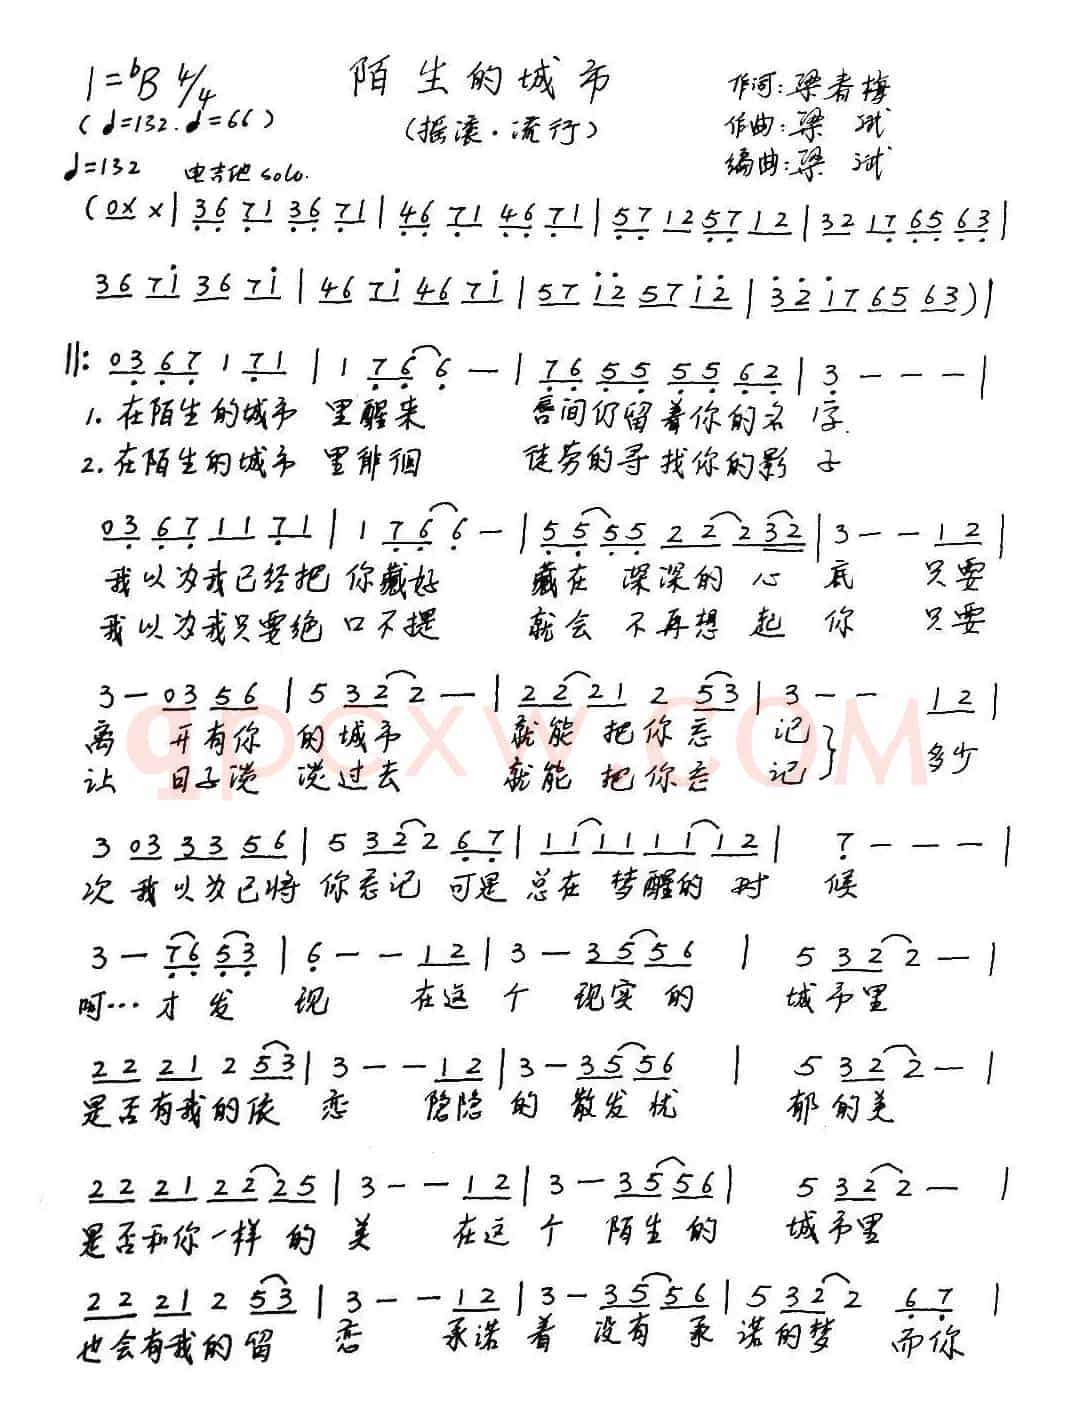 1=♭B 4/4
陌生的城市
(♩=132.♩=66)
(摇滚·流行)
作词:梁春梅
作曲:梁斌
编曲:梁斌
♩=132 电吉他 solo.
(0X X | 36 71 36 71 | 46 71 46 71 | 57 12 57 12 | 32 17 65 63 |
36 71 36 71 | 46 71 46 71 | 57 12 57 12 | 32 17 65 63 ) |
||: 03 67 1 71 | 1 76 6 — | 76 55 55 62 | 3 — — — |
1. 在陌生的城市 里醒来 唇间仍留着你的名 字.
2. 在陌生的城市 里徘徊 徒劳的寻找你的影 子
03 67 11 71 | 1 76 6 — | 55 55 22 232 | 3 — — 12 |
我以为我已经把 你藏好 藏在 深深的 心 底 只要
我以为我只要绝 口不提 就会 不再想 起 你 只要
3 — 03 56 | 5 32 2 — | 22 21 2 53 | 3 — — 12 |
离 开有你 的城市 就能 把你忘 记
让 日子淡 淡过去 就能 把你忘 记 } 多少
3 03 33 56 | 5 32 2 67 | 11 11 11 12 | 7 — — — |
次 我以为已将 你忘记 可是 总在 梦醒的 时 候
3 — 76 53 | 6 — — 12 | 3 — 35 56 | 5 32 2 — |
呵… 才 发 现 在这 个 现实 的 城市里
22 21 2 53 | 3 — — 12 | 3 — 35 56 | 5 32 2 — |
是否有我的依 恋 隐隐 的 散发忧 郁的美
22 21 22 25 | 3 — — 12 | 3 — 35 56 | 5 32 2 — |
是否和你一样 的 美 在这 个 陌生的 城市里
22 21 2 53 | 3 — — 12 | 3 — 35 56 | 5 32 2 67 |
也会有我的留 恋 承诺 着 没有 承 诺的梦 而你
qpcxw.COM